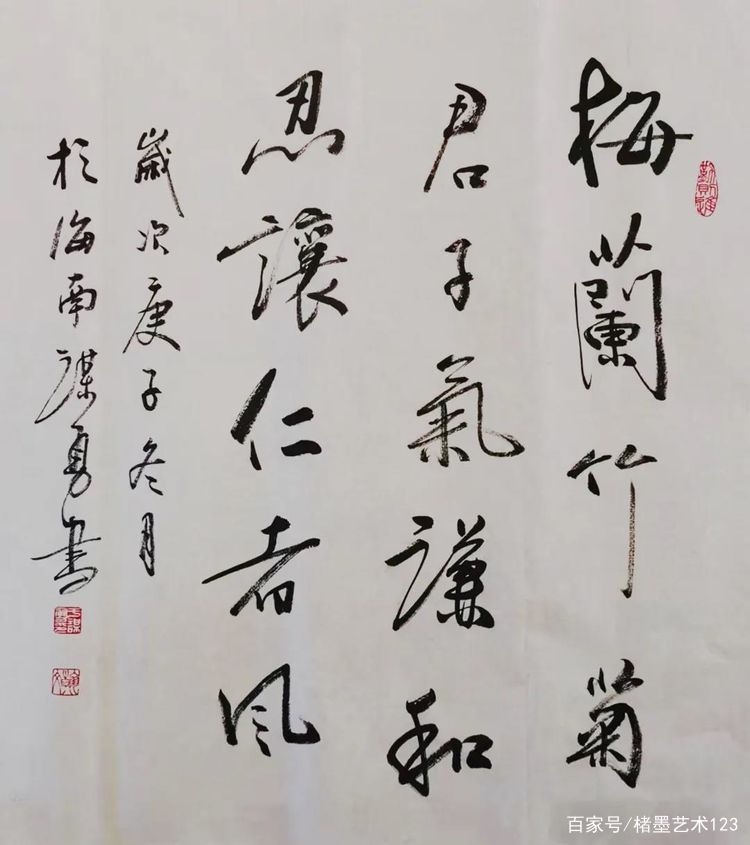 梅蘭竹菊
君子氣謙和
忍讓仁者風
歲次庚子冬月
於海南謀勇書
百家号/楮墨艺术123